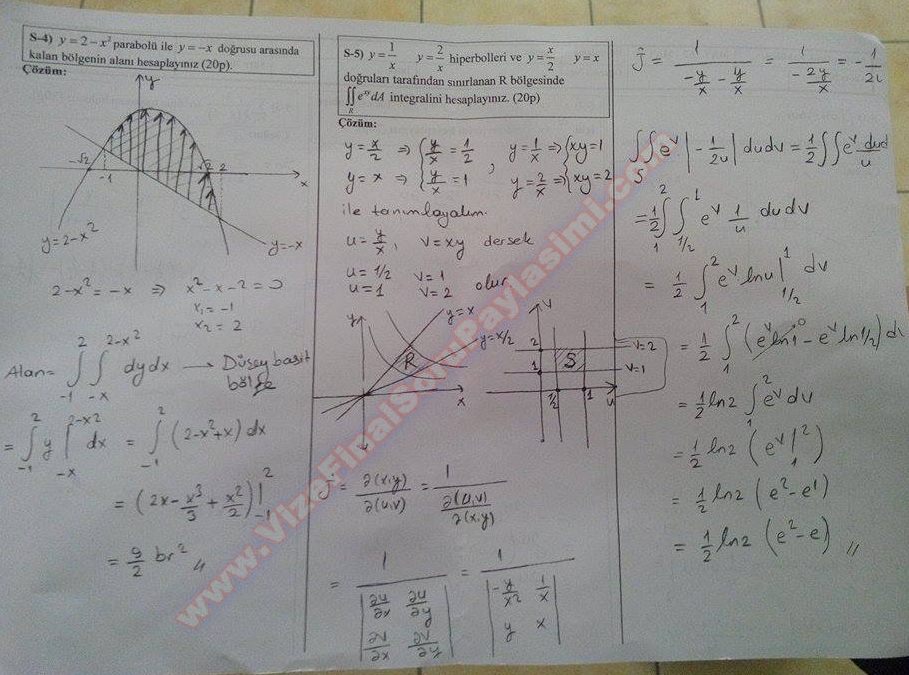 S-4) y = 2 − x² parabolü ile y = −x doğrusu arasında
kalan bölgenin alanı hesaplayınız (20p).
Çözüm:
y
-√2
-1
√2
2
x
y=2-x²
y=-x
2-x² = -x ⇒ x²-x-2=0
x₁=-1
x₂=2
Alan= ∫_{-1}^{2} ∫_{-x}^{2-x²} dydx → Düşey basit
bölge
= ∫_{-1}^{2} y |_{-x}^{2-x²} dx = ∫_{-1}^{2} (2-x²+x) dx
= (2x - x³/3 + x²/2) |_{-1}^{2}
= 9/2 br² //
S-5) y = 1/x y = 2/x hiperbolleri ve y = x/2 y = x
doğruları tarafından sınırlanan R bölgesinde
∬_R e^{xy} dA integralini hesaplayınız. (20p)
Çözüm:
y = x/2 ⇒ { y/x = 1/2 , y = 1/x ⇒ { xy=1
y = x ⇒ { y/x = 1 y = 2/x ⇒ { xy=2
ile tanımlayalım.
u = y/x , v = xy dersek
u = 1/2 v = 1
u = 1 v = 2 olur
y
y=x
y=x/2
R
x
v
2
v=2
S
1
v=1
1/2
1
u
J = ∂(x,y)/∂(u,v) = 1/(∂(u,v)/∂(x,y))
= 1/|∂u/∂x ∂u/∂y; ∂v/∂x ∂v/∂y| = 1/|-y/x² 1/x; y x|
J = 1/(-y/x - y/x) = 1/(-2y/x) = -1/2u
∬_S e^v |-1/2u| dudv = 1/2 ∬ e^v dud/u
= 1/2 ∫_1^2 ∫_{1/2}^1 e^v 1/u dudv
= 1/2 ∫_1^2 e^v lnu |_{1/2}^1 dv
= 1/2 ∫_1^2 (e^v ln1 → 0 - e^v ln1/2) dv
= 1/2 ln2 ∫_1^2 e^v dv
= 1/2 ln2 (e^v |_1^2)
= 1/2 ln2 (e² - e¹)
= 1/2 ln2 (e² - e) //
www.VizeFinalSoruPaylasimi.com